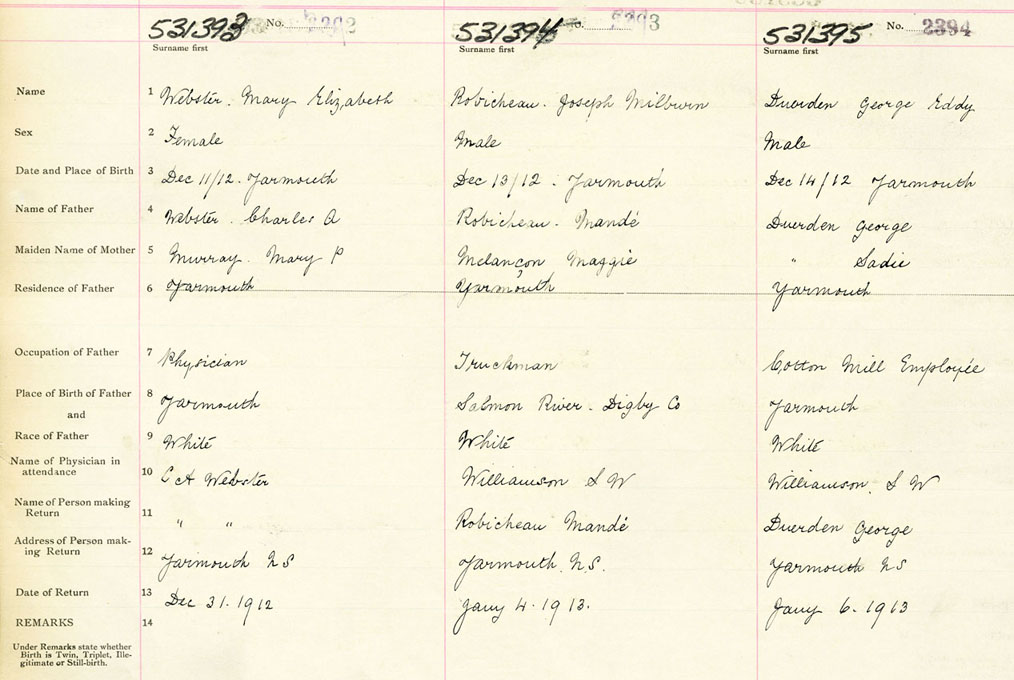 531393 No. 531394 No. 5293 531395 No. 2394
Surname first Surname first Surname first
Name 1 Webster. Mary Elizabeth Robicheau. Joseph Milburn Duerden George Eddy
Sex 2 Female Male Male
Date and Place of Birth 3 Dec 11/12. Yarmouth Dec 13/12. Yarmouth Dec 14/12 Yarmouth
Name of Father 4 Webster. Charles A Robicheau. Mandé Duerden George
Maiden Name of Mother 5 Murray. Mary P Melançon Maggie " Sadie
Residence of Father 6 Yarmouth Yarmouth Yarmouth
Occupation of Father 7 Physician Truckman Cotton Mill Employée
Place of Birth of Father 8 Yarmouth Salmon River. Digby Co Yarmouth
and
Race of Father 9 White White White
Name of Physician in
attendance 10 C A Webster Williamson S W Williamson. S W
Name of Person making
Return 11 " " Robicheau Mandé Duerden George
Address of Person mak-
ing Return 12 Yarmouth N S Yarmouth. N.S. Yarmouth N S
Date of Return 13 Dec 31. 1912 Jany 4. 1913. Jany 6. 1913
REMARKS 14
Under Remarks state whether
Birth is Twin, Triplet, Ille-
gitimate or Still-birth.